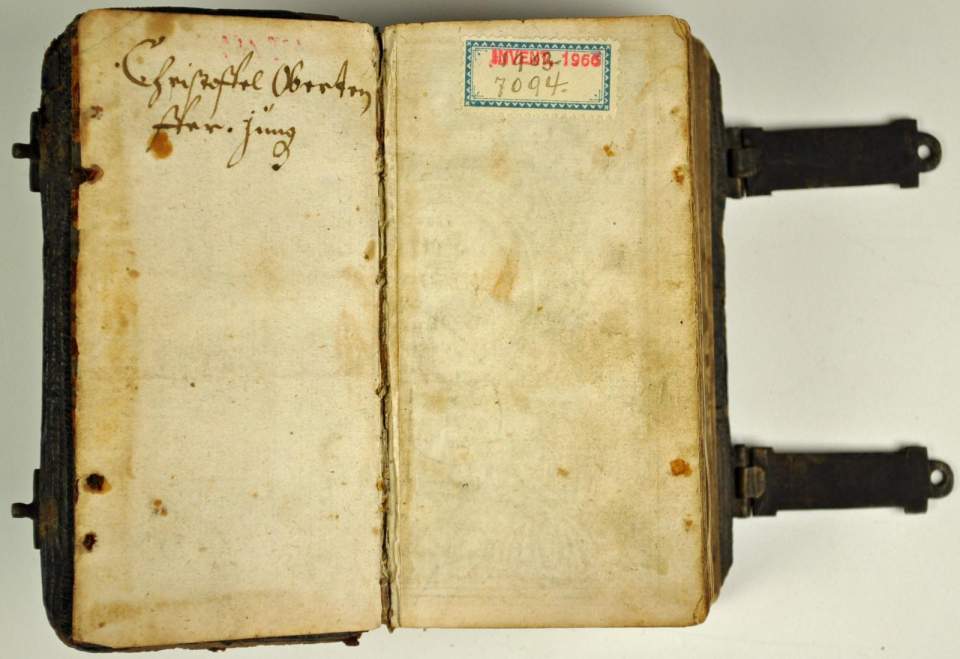 Christoffel Oberten
ffer. Jung
INVENT. 1966
7094.